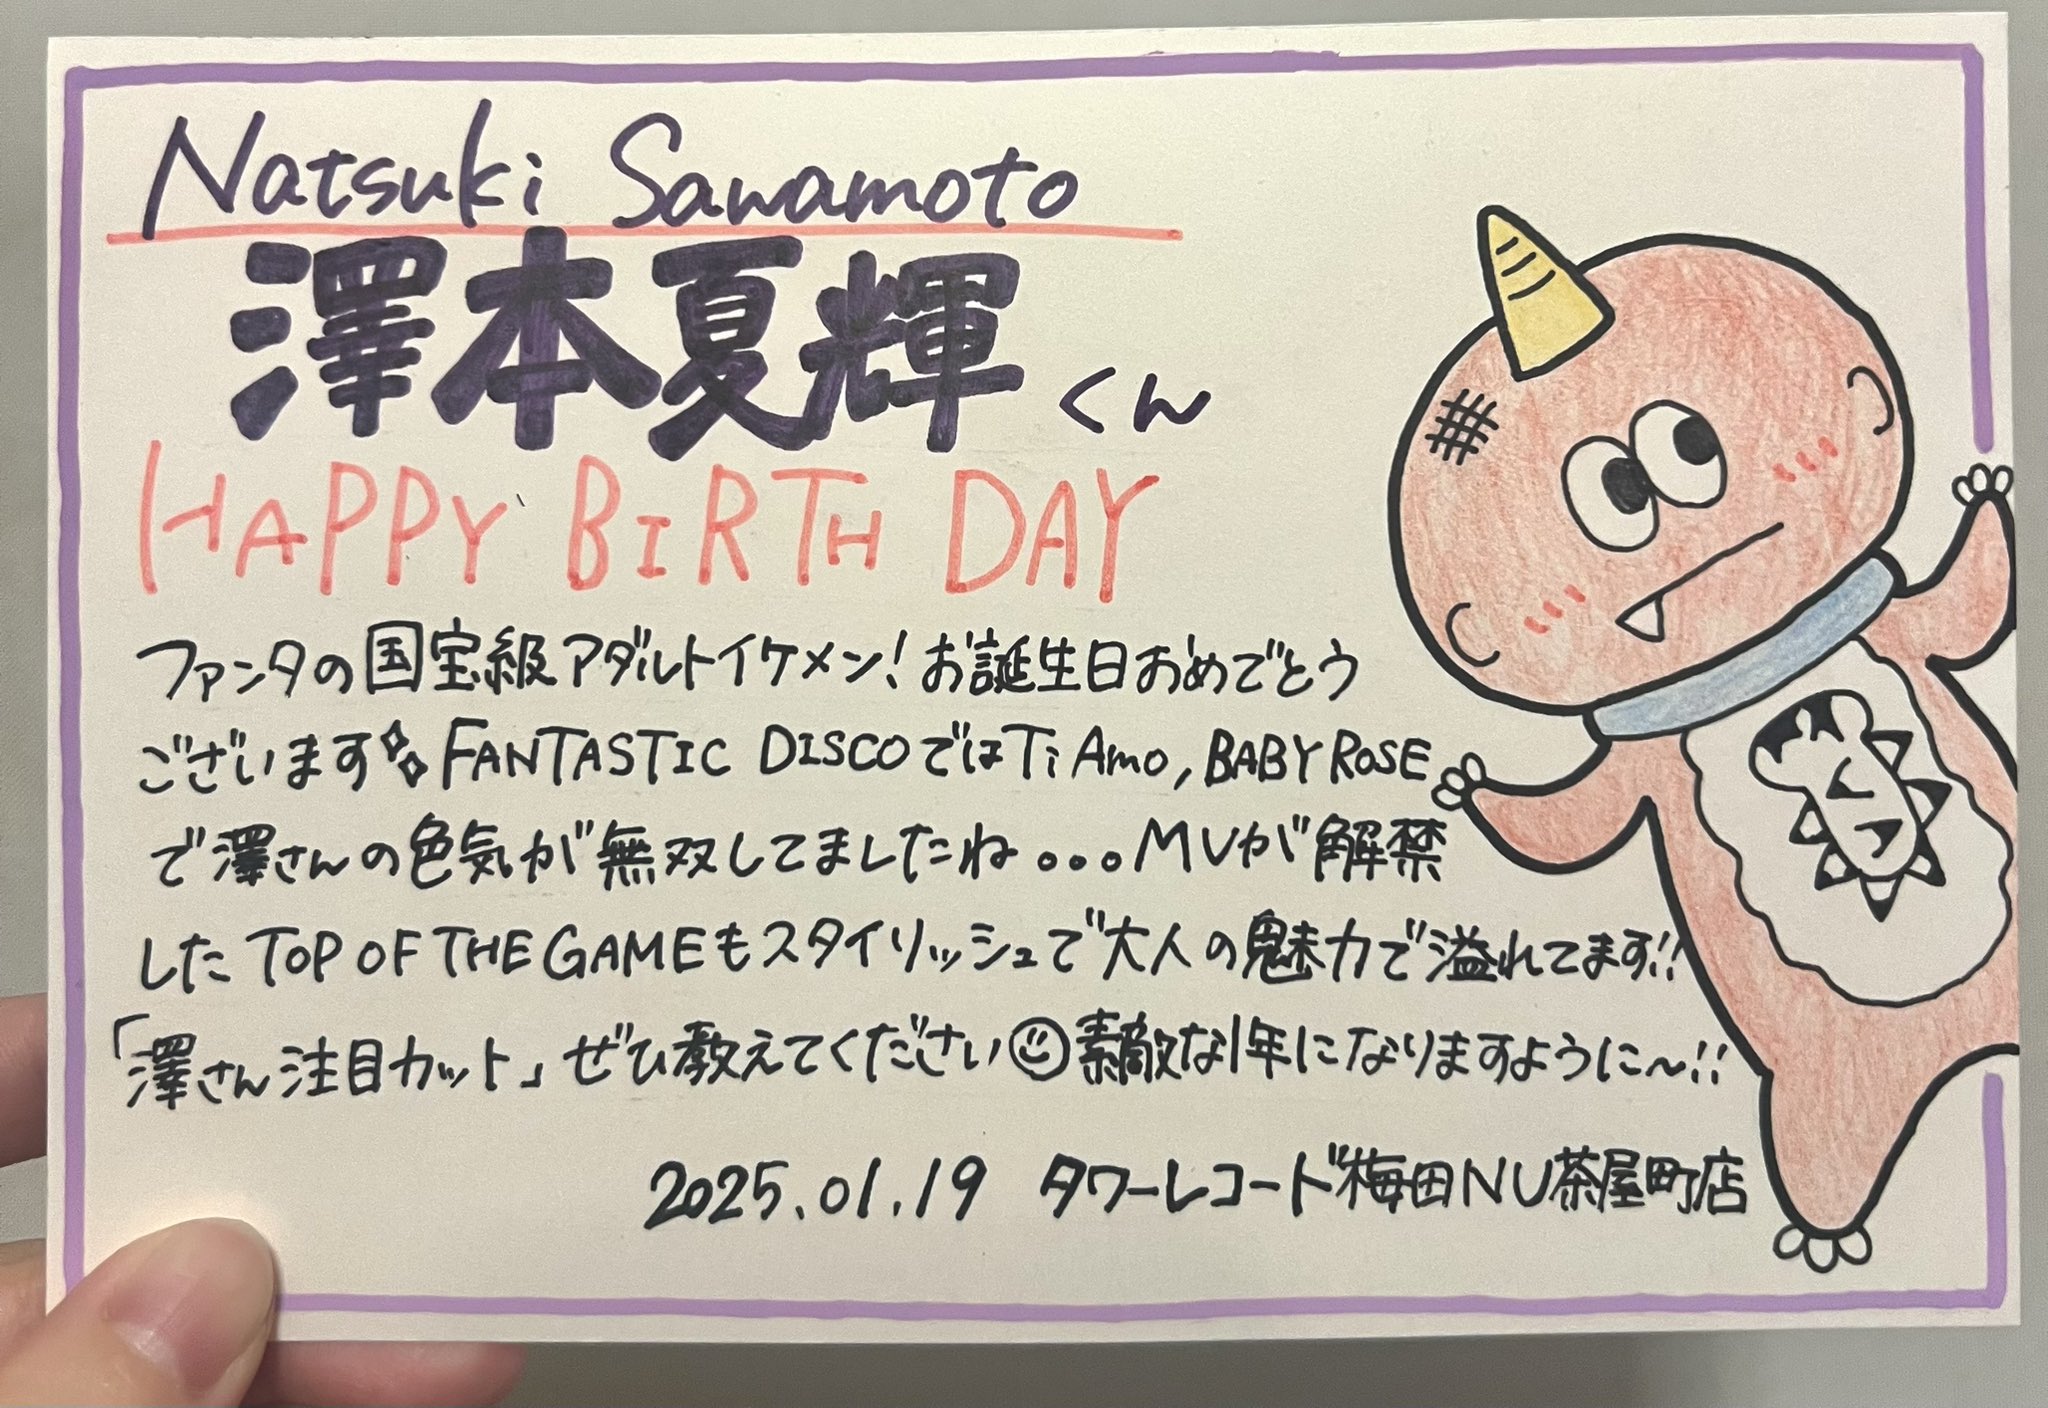 Natsuki Sawamoto
澤本夏輝くん
HAPPY BIRTH DAY
ファンタの国宝級アダルトイケメン!お誕生日おめでとう
ございます✨FANTASTIC DISCOではTi Amo, BABY ROSE
で澤さんの色気が無双してましたね。。。MVが解禁
したTOP OF THE GAMEもスタイリッシュで大人の魅力で溢れてます!!
「澤さん注目カット」ぜひ教えてください☺素敵な1年になりますように〜!!
2025.01.19 タワーレコード梅田NU茶屋町店